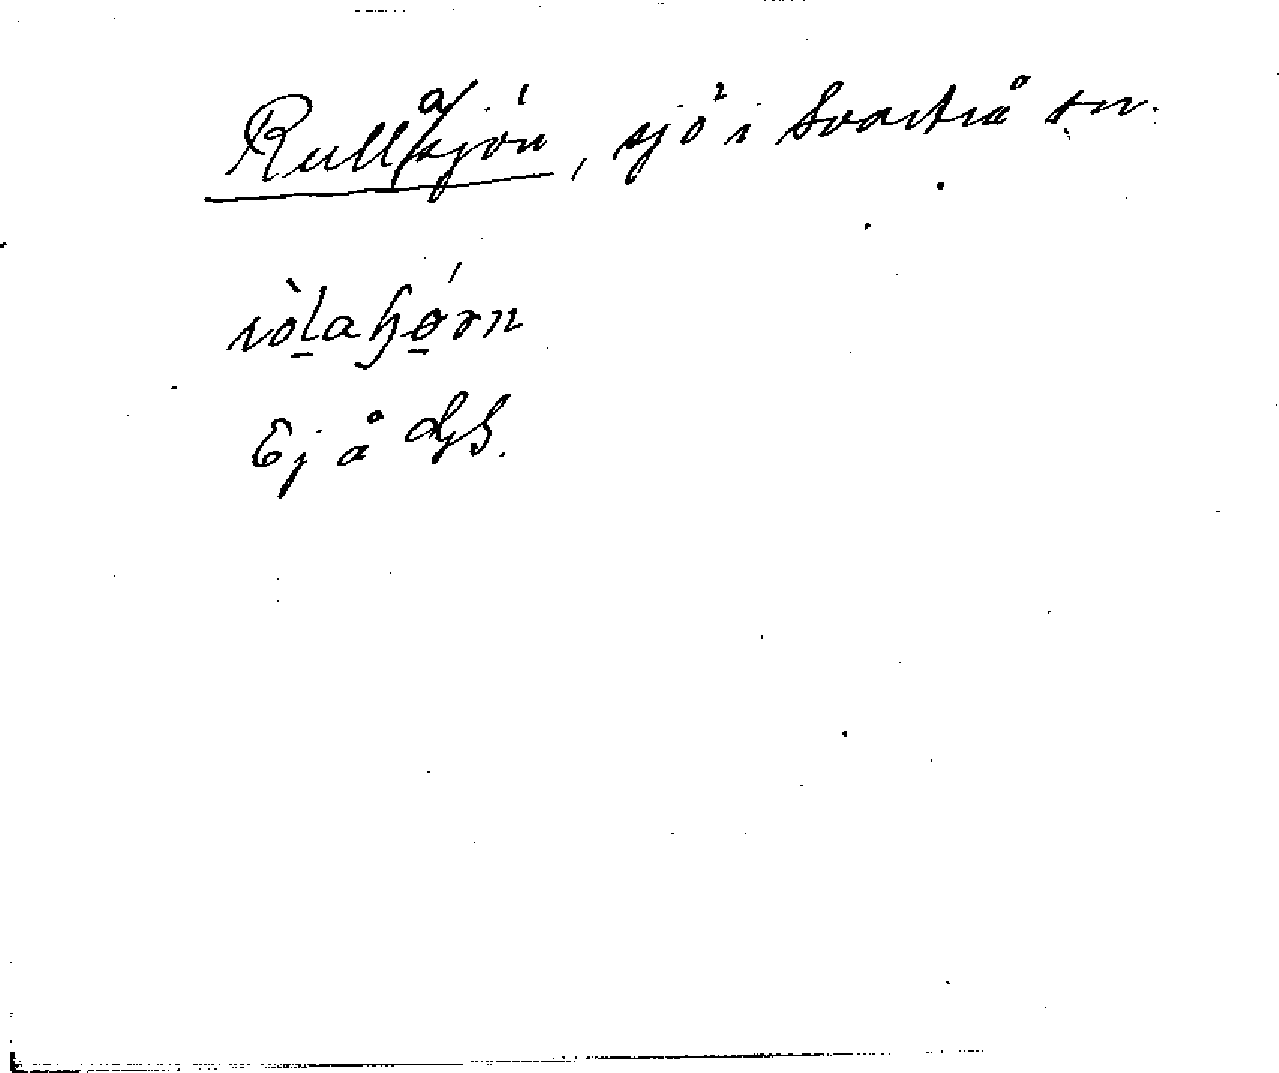 Rullasjön, sjö i Svartrå sn.
ròlaʃǿrn
Ej å GS.